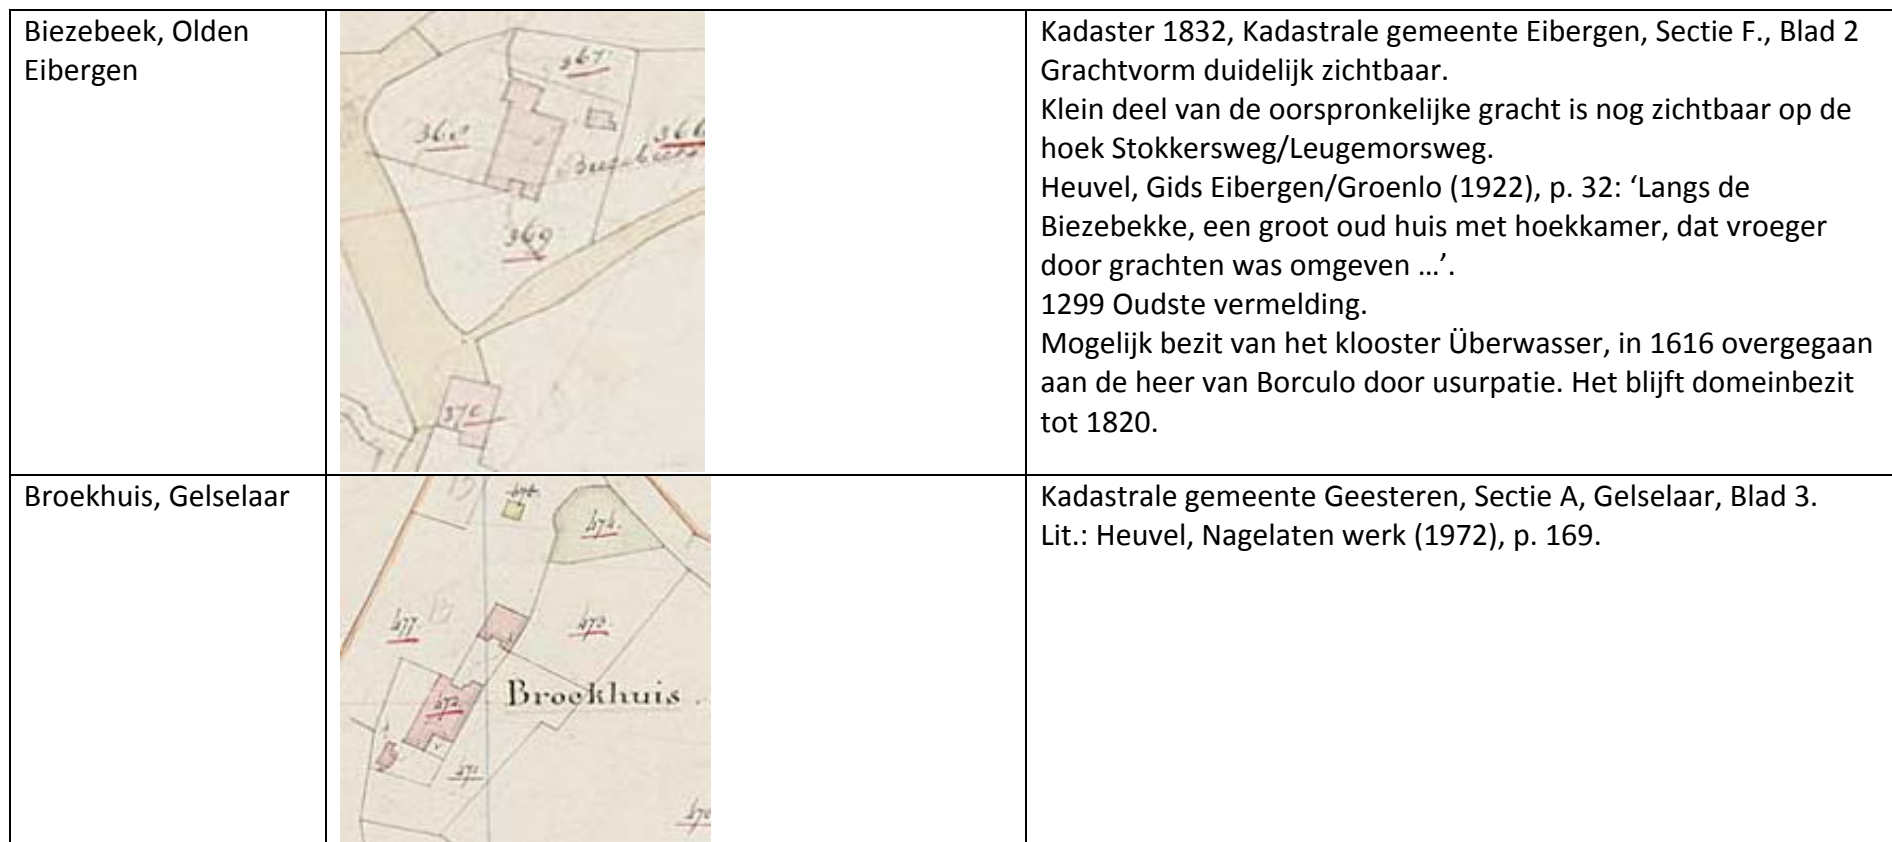 Biezebeek, Olden
Eibergen
367
368
366
369
37
Kadaster 1832, Kadastrale gemeente Eibergen, Sectie F., Blad 2
Grachtvorm duidelijk zichtbaar.
Klein deel van de oorspronkelijke gracht is nog zichtbaar op de
hoek Stokkersweg/Leugemorsweg.
Heuvel, Gids Eibergen/Groenlo (1922), p. 32: ‘Langs de
Biezebekke, een groot oud huis met hoekkamer, dat vroeger
door grachten was omgeven …’.
1299 Oudste vermelding.
Mogelijk bezit van het klooster Überwasser, in 1616 overgegaan
aan de heer van Borculo door usurpatie. Het blijft domeinbezit
tot 1820.
Broekhuis, Gelselaar
474.
477
473.
472
Broekhuis.
471
470
Kadastrale gemeente Geesteren, Sectie A, Gelselaar, Blad 3.
Lit.: Heuvel, Nagelaten werk (1972), p. 169.